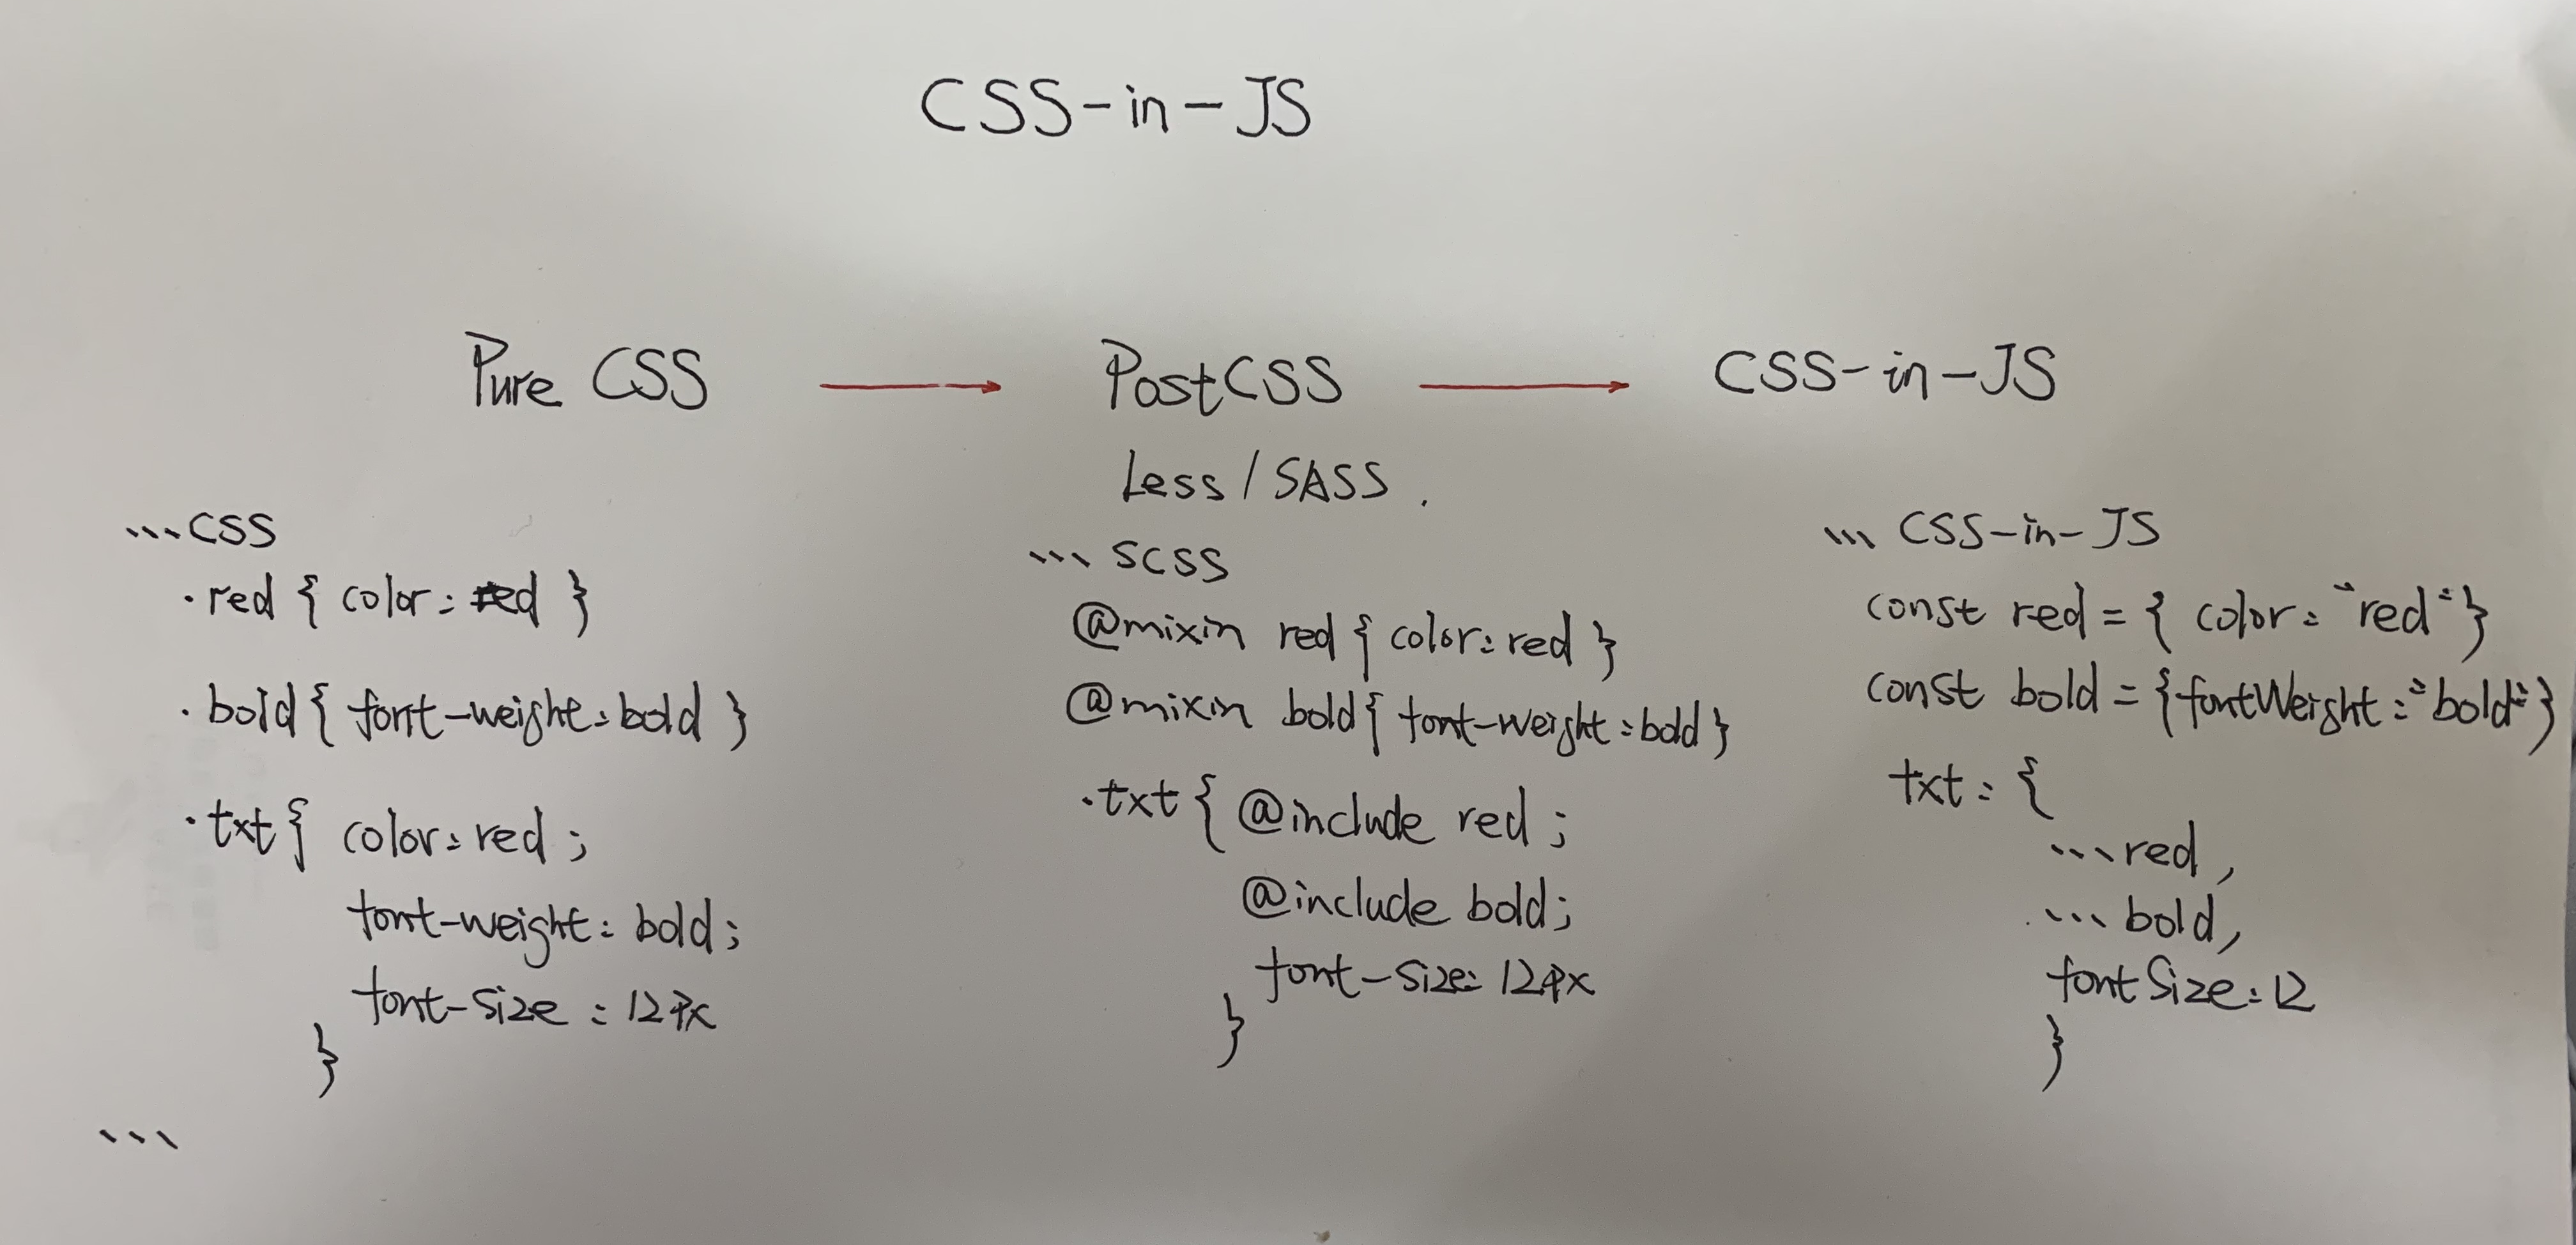 CSS-in-JS
Pure CSS → PostCSS → CSS-in-JS
Less / SASS.
```CSS
.red { color: red }
.bold { font-weight: bold }
.txt { color: red;
font-weight: bold;
font-size: 12px
}
```
``` SCSS
@mixin red { color: red }
@mixin bold { font-weight: bold }
.txt { @include red;
@include bold;
font-size: 12px
}
``` CSS-in-JS
const red = { color: "red" }
const bold = { fontWeight: "bold" }
txt: {
...red,
...bold,
fontSize: 12
}